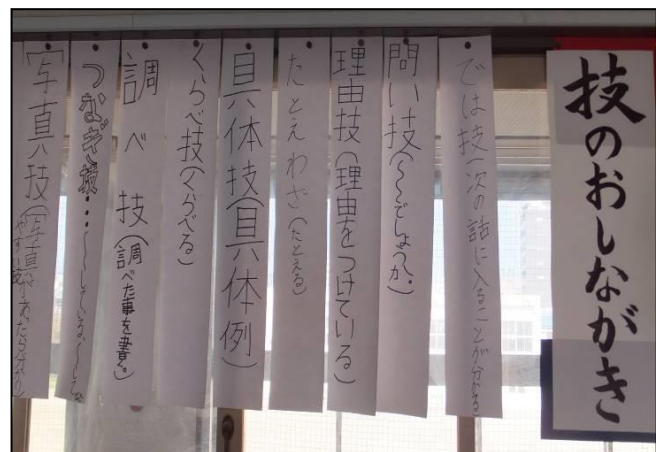 技のおしながき
では技(次の話に入ることが分かる
問い技(〜でしょうか。)
理由技(理由をつけている)
たとえわざ(たとえる)
具体技(具体例)
くらべ技(くらべる)
調べ技(調べた事を書く。)
つなぎ技・・・〜している。〜して
写真技(写真があったら分かりやすい